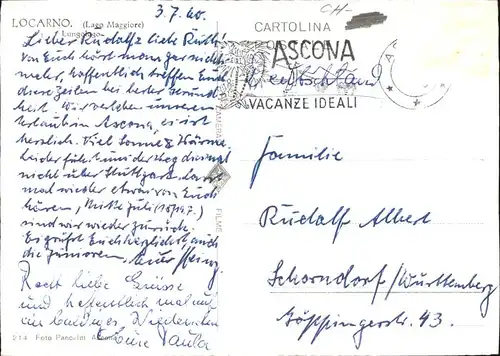 3.7.60.
LOCARNO. (Lago Maggiore)
Lungolago
Lieber Rudolf, liebe Ruth!
von Euch hört man gar nichts
mehr, hoffentlich treffen Euch
diese Zeilen bei bester Gesund-
heit. Wir verleben unseren
Urlaub in Ascona, es ist
herrlich. Viel Sonne & Wärme.
Leider führt uns der Weg diesmal
nicht über Stuttgart. Lasst
mal wieder etwas von Euch
hören, Mitte Juli (18/7.)
sind wir wieder zurück.
Es grüßt Euch herzlichst auch
die Junioren, Euer Heinz
Recht liebe Grüsse
und hoffentlich mal auf
ein baldiges Wiedersehen
Eure Paula
214 Foto Pancaldi Ascona
CARTOLINA
CH-
ASCONA
Deutschland
VACANZE IDEALI
FILME
Familie
Rudolf Albert
Schorndorf/Württemberg
Göppingerstr. 43.